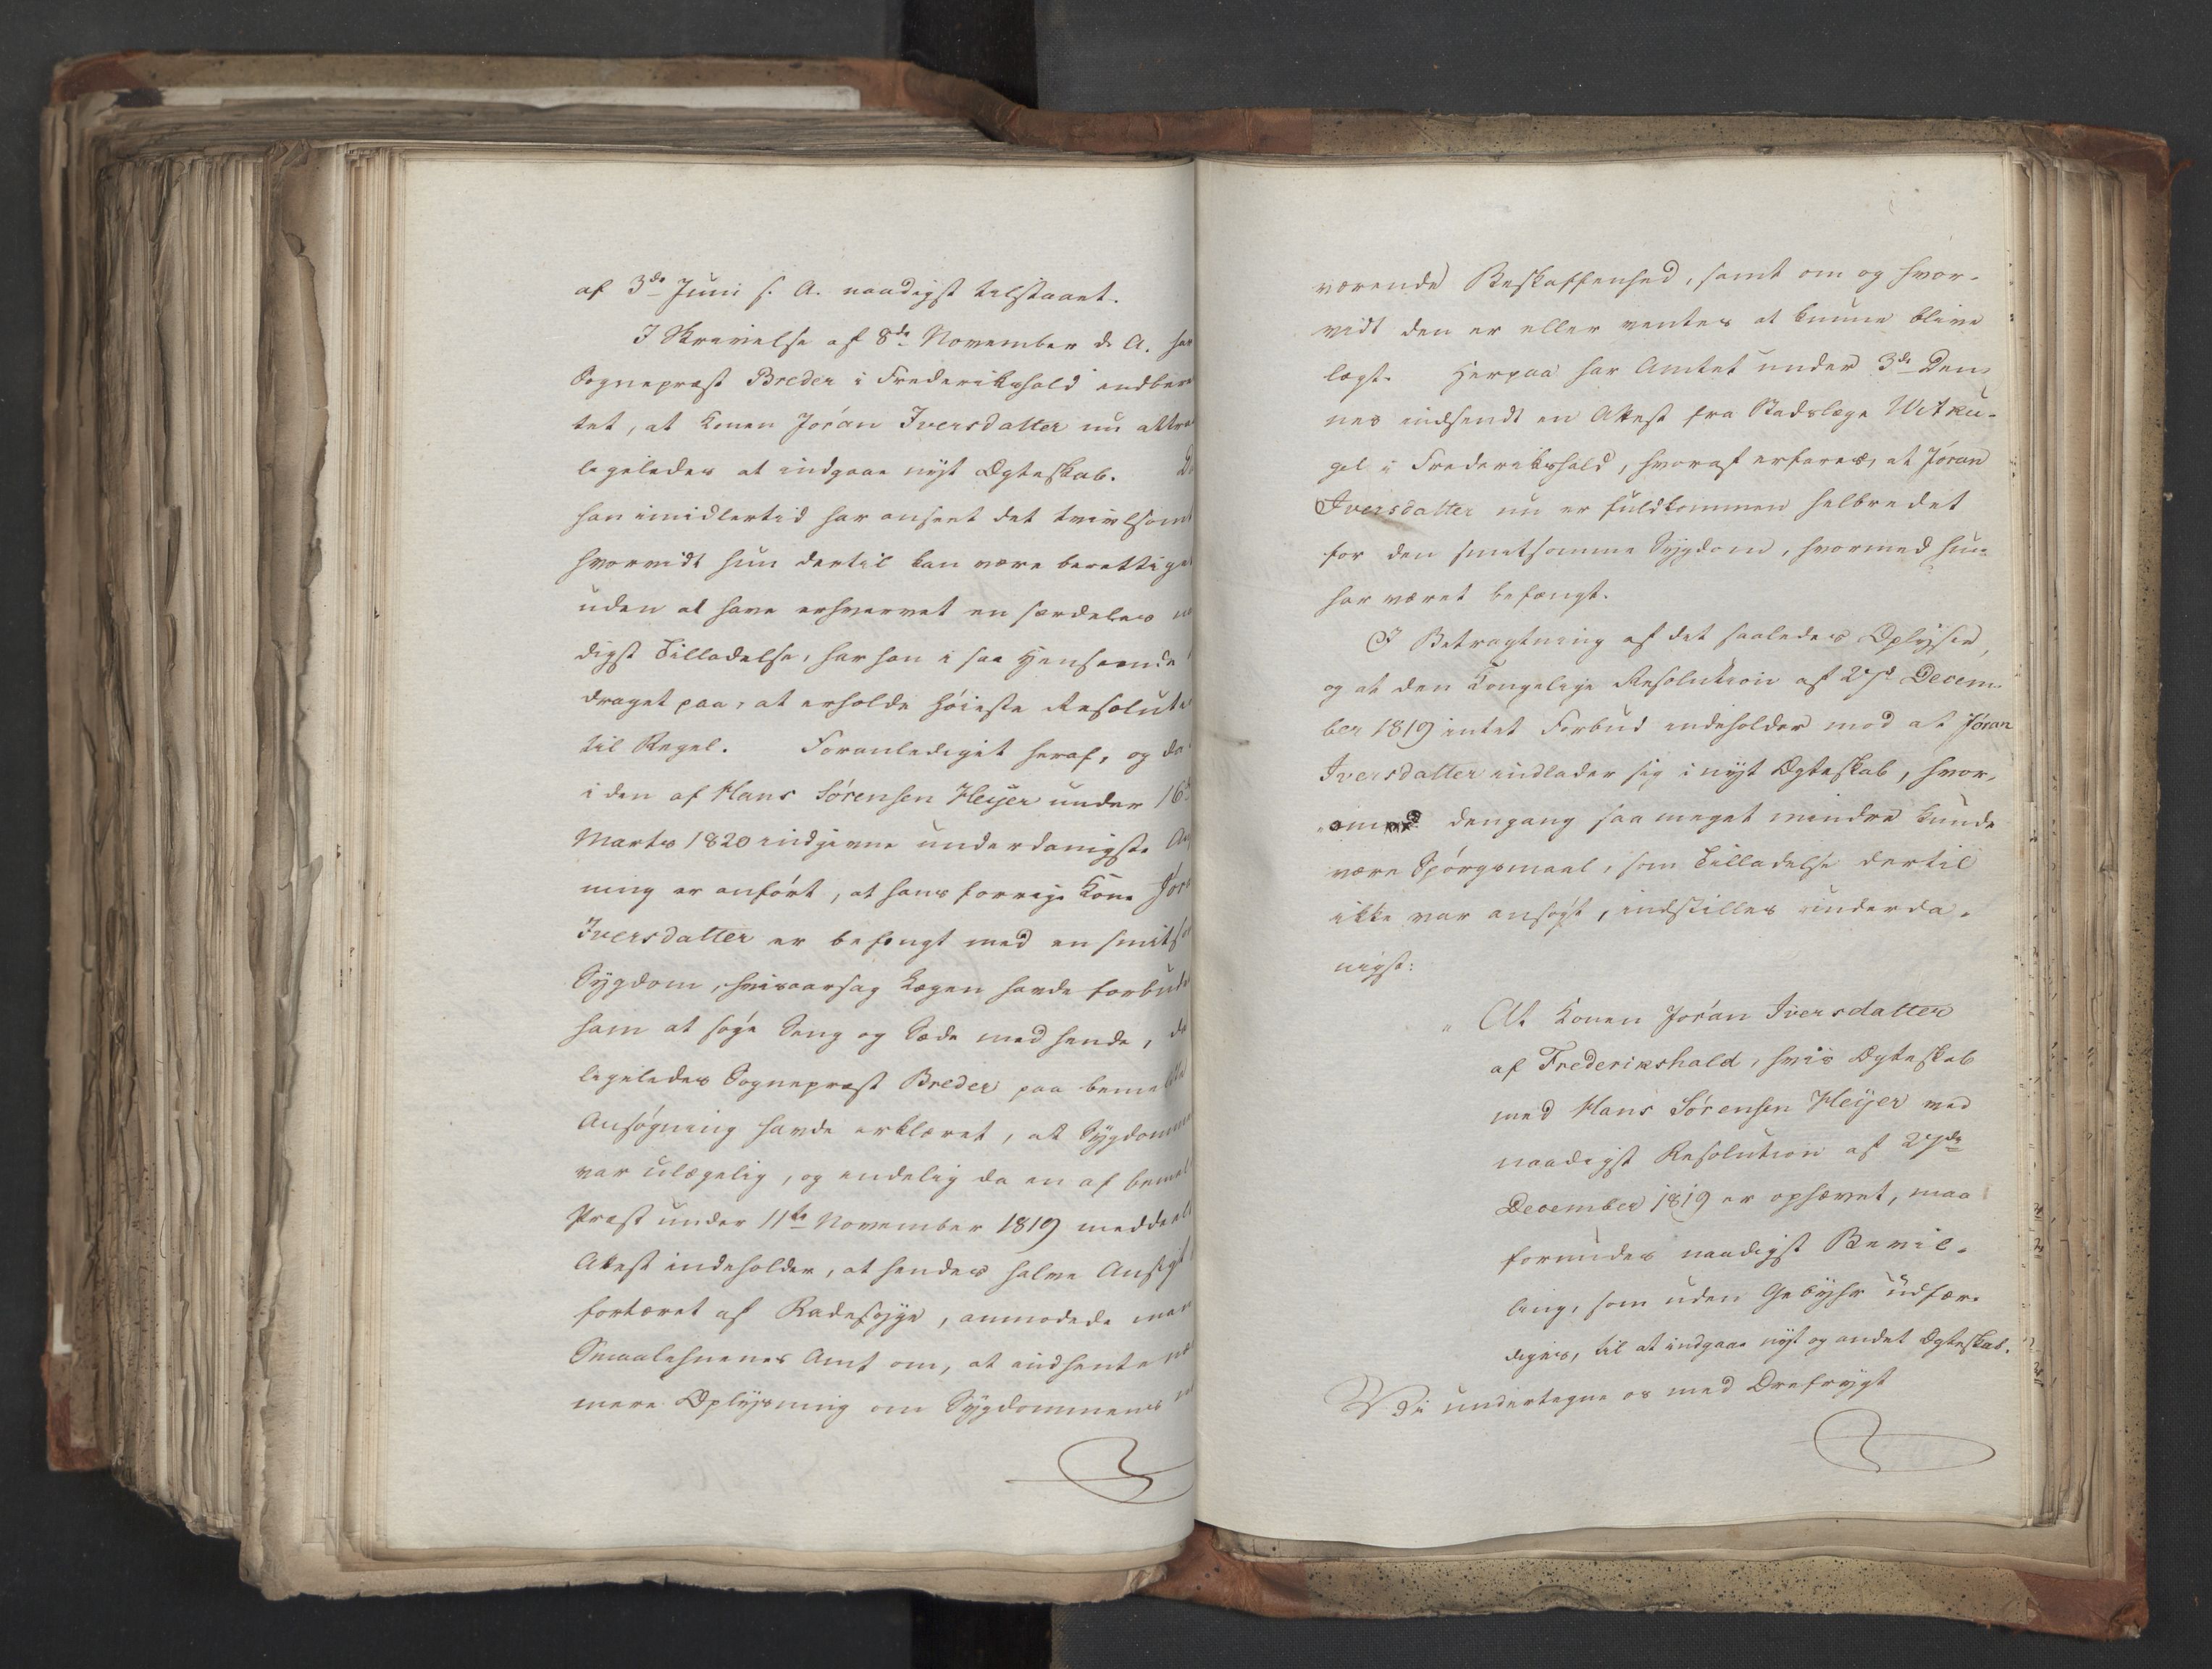 af 3de Juni s. A. naadigst tilstaaet.
I Skrivelse af 8de November d. A. har
Sognepræst Breder i Frederikshald indberet
tet, at Konen Jóran Iversdatter nu attraaer
ligeledes at indgaae nyt Ægteskab. Da
han imidlertid har anseet det tvivlsomt
hvorvidt hun dertil kan være berettiget
uden at have erhvervet en særdeles naa
digst Tilladelse, har han i saa Henseende
draget paa, at erholde høieste Resolution
til Regel. Foranlediget heraf, og da
i den af Hans Sörensen Heijer under 16de
Marts 1820 indgivne underdanigste Ansøg
ning er anført, at hans forrige Kone Jóran
Iversdatter er befængt med en smitsom
Sygdom, hvisaarsag Lægen havde forbudet
ham at søge Seng og Sæde med hende, da
ligeledes Sognepræst Breder paa bemeldte
Ansøgning havde erklæret, at Sygdommen
var ulægelig, og endelig da en af bemeldte
Præst under 11te November 1819 meddeelt
Attest indeholder, at hendes halve Ansigt
fortæret af Radesyge, anmodede man
Smaalehnenes Amt om, at indhente nær
mere Oplysning om Sygdommens
værende Beskaffenhed, samt om og hvor-
vidt den er eller ventes at kunne blive
lægt. Herpaa har Amtet under 3de Den-
nes indsendt en Attest fra Stadslæge Witku-
gel i Frederikshald, hvoraf erfares, at Jóran
Iversdatter nu er fuldkommen helbredet
for den smitsomme Sygdom, hvormed hun
har været befængt.
I Betragtning af det saaledes Oplyste,
og at den Kongelige Resolution af 27d Decem-
ber 1819 intet Forbud indeholder mod at Jóran
Iversdatter indlader sig i nyt Ægteskab, hvor-
om dengang saa meget mindre kunde
være Spörgsmaal, som Tilladelse dertil
ikke var ansøgt, indstilles underda-
nigst:
" At Konen Jóran Iversdatter
af Frederikshald, hvis Ægteskab
med Hans Sörensen Heijer ved
naadigst Resolution af 27de
December 1819 er ophævet, maa
forundes naadigst Bevil-
ling, som uden Gebyhr udfær-
diges, til at indgaae nyt og andet Ægteskab.
Vi undertegne os med Ærefrygt